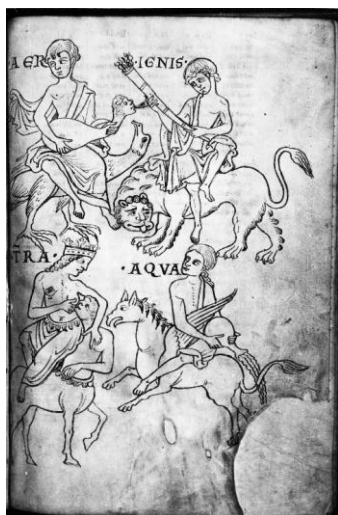 AER
·IGNIS·
T̄RA·
·AQVA·